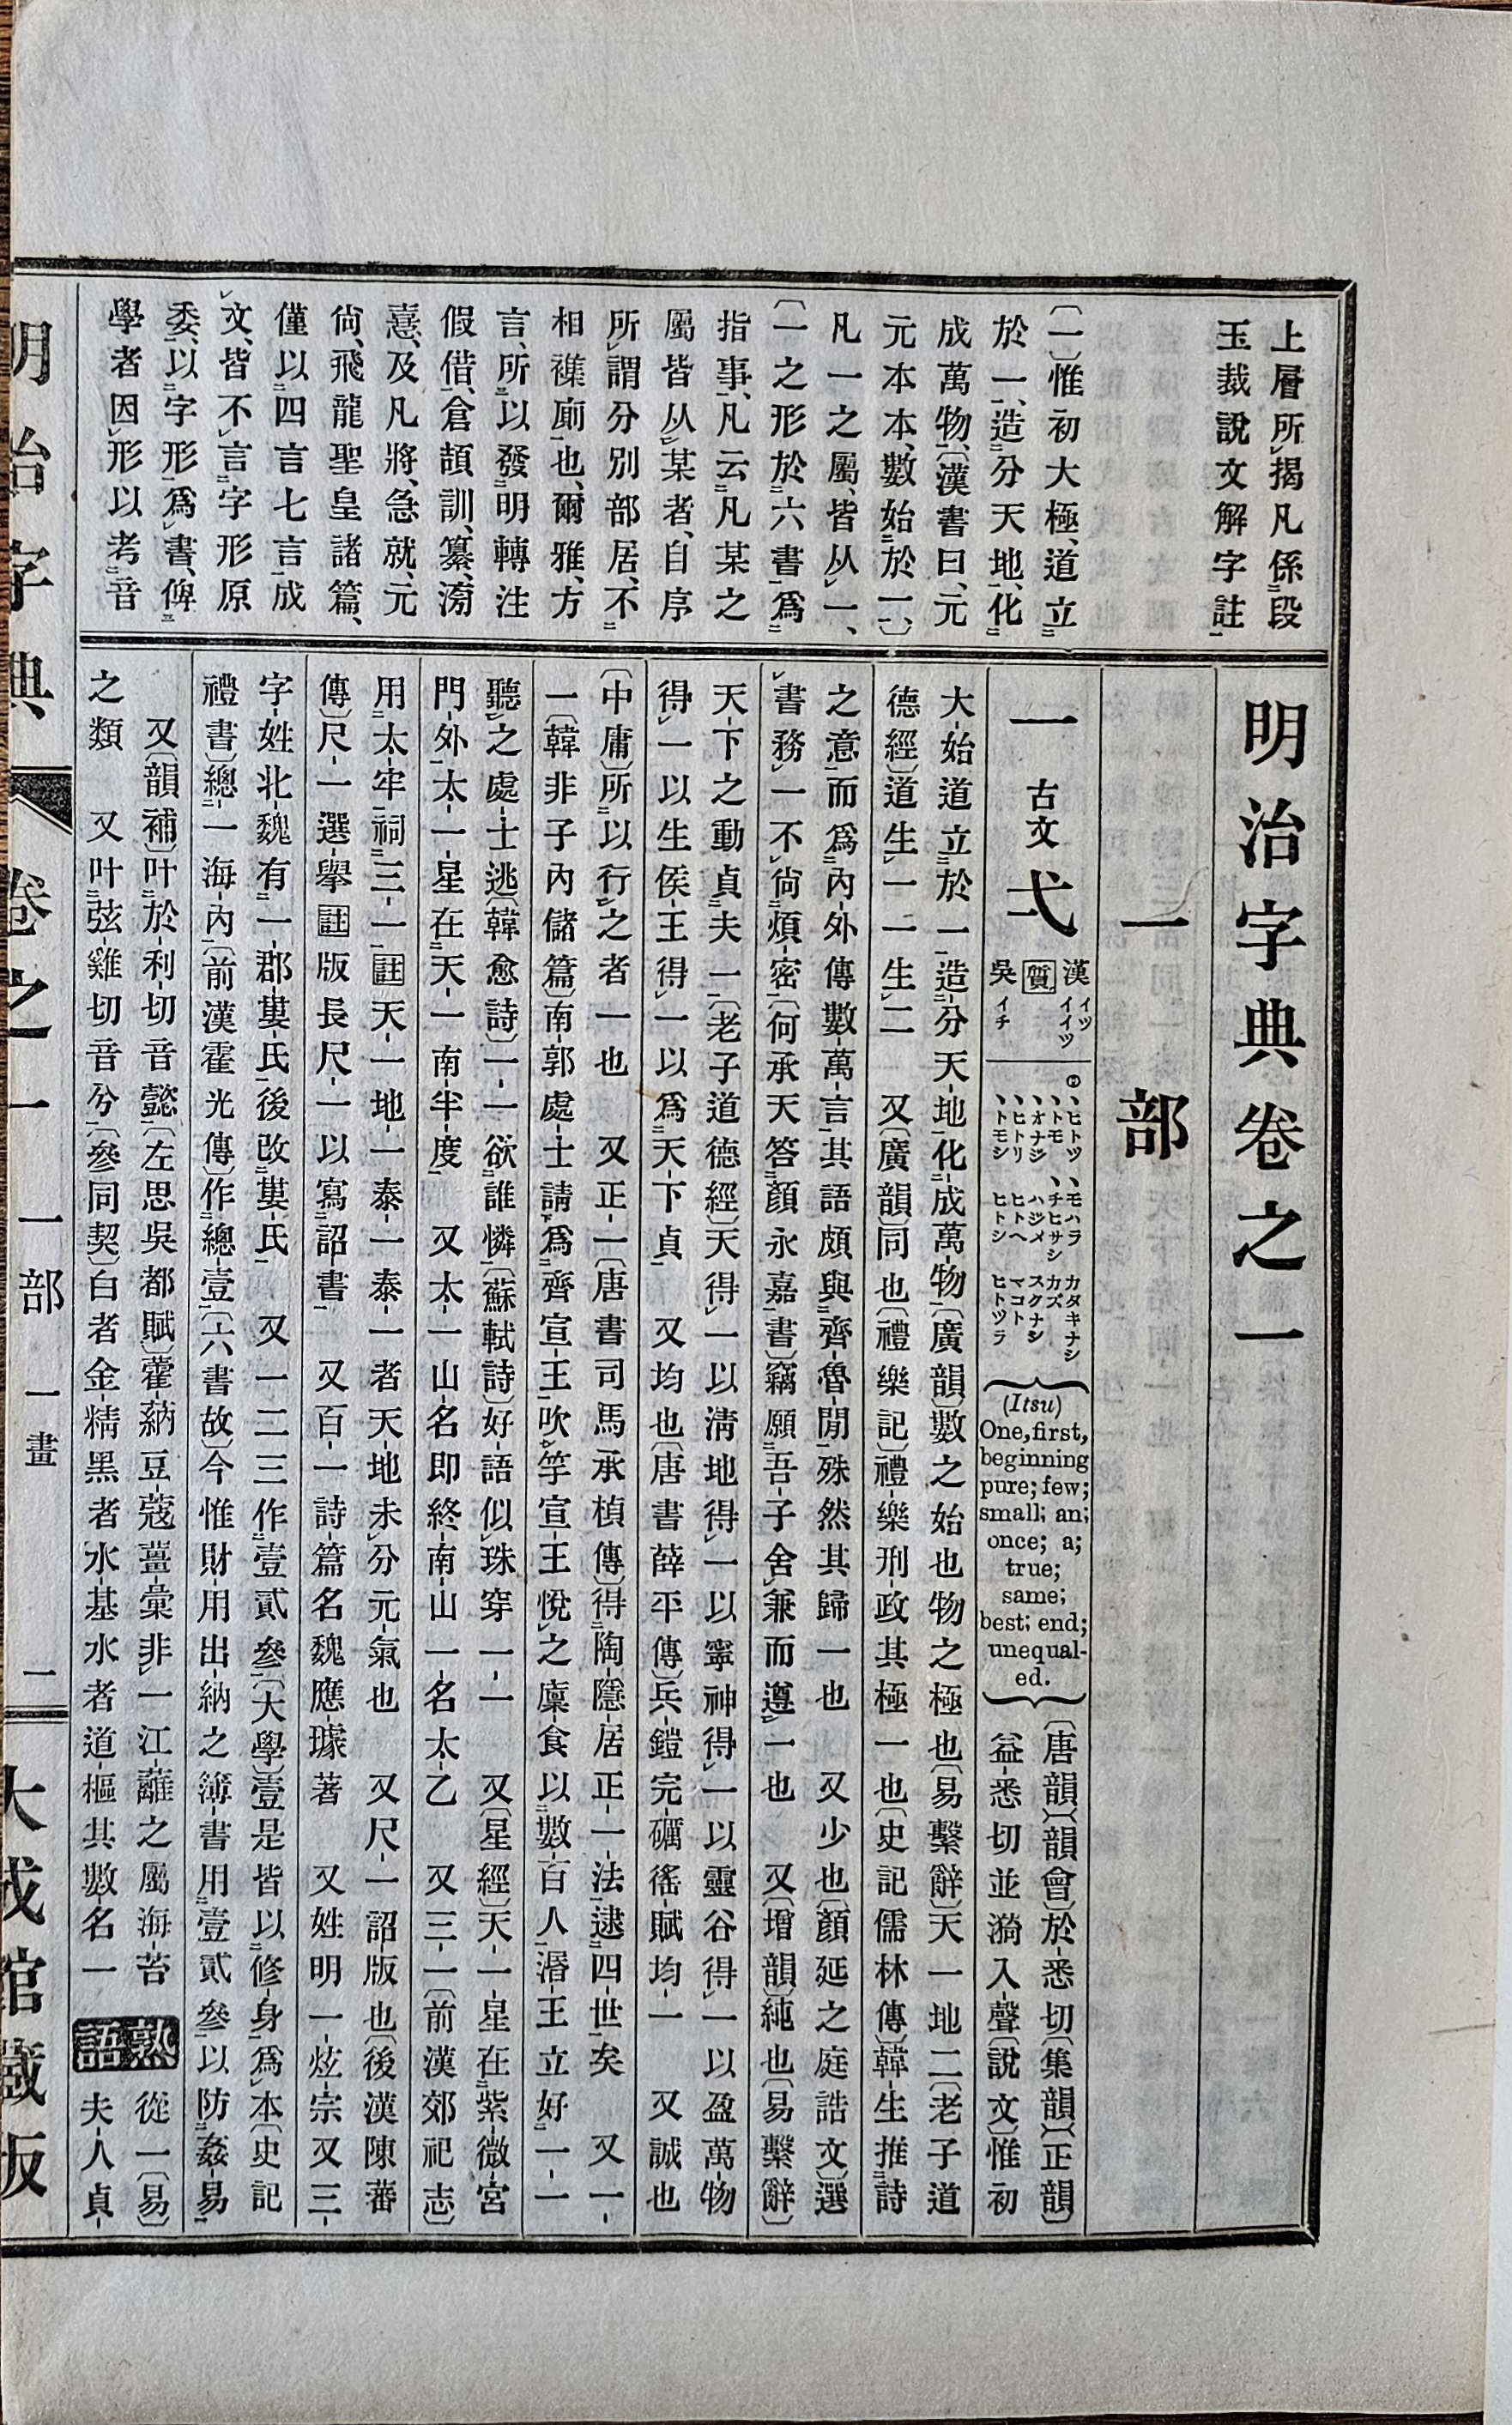 上層所揭凡係段
玉裁說文解字註
〔一〕惟初大極、道立
於一、造分天地、化
成萬物、〔漢書曰、元
元本本、數始於一、〕
凡一之屬、皆从一、
〔一之形於六書爲
指事、凡云凡某之
屬皆从某者、自序
所謂分別部居、不
相襍廁也、爾雅、方
言、所以發明轉注
假借、倉頡訓、纂、滂
憙、及凡將、急就、元
尙、飛龍聖皇諸篇、
僅以四言七言成
文、皆不言字形原
委、以字形爲書、俾
學者因形以考音
明治字典卷之一
一部
一 古文 弌
漢 イツ イイツ
質
吳 イチ
ヒトツ モハラ カダキナシ
トモ チヒサシ カズ
オナジ ハジメ スクナシ
ヒトリ ヒトヘ マコト
トモシ ヒトシ ヒトツラ
(Itsu)
One, first,
beginning
pure; few;
small; an;
once; a;
true;
same;
best; end;
unequal-
ed.
〔唐韻〕〔韻會〕於悉切〔集韻〕〔正韻〕
益悉切並漪入聲〔說文〕惟初
大始道立於一造分天地化成萬物〔廣韻〕數之始也物之極也〔易繫辭〕天一地二〔老子道
德經〕道生一一生二 又〔廣韻〕同也〔禮樂記〕禮樂刑政其極一也〔史記儒林傳〕韓生推詩
之意而爲內外傳數萬言其語頗與齊魯閒殊然其歸一也 又少也〔顏延之庭誥文〕選
書務一不尙煩密〔何承天答顏永嘉書〕竊願吾子舍兼而遵一也 又〔增韻〕純也〔易繫辭〕
天下之動貞夫一〔老子道德經〕天得一以淸地得一以寧神得一以靈谷得一以盈萬物
得一以生侯王得一以爲天下貞 又均也〔唐書薛平傳〕兵鎧完礪徭賦均一 又誠也
〔中庸〕所以行之者一也 又正一〔唐書司馬承楨傳〕得陶隱居正一法逮四世矣 又一
一〔韓非子內儲篇〕南郭處士請爲齊宣王吹竽宣王悅之廩食以數百人湣王立好一一
聽之處士逃〔韓愈詩〕一一欲誰憐〔蘇軾詩〕好語似珠穿一一 又〔星經〕天一星在紫微宮
門外太一星在天一南半度 又太一山名卽終南山一名太乙 又三一〔前漢郊祀志〕
用太牢祠三一註天一地一泰一泰一者天地未分元氣也 又尺一詔版也〔後漢陳蕃
傳〕尺一選擧註版長尺一以寫詔書 又百一詩篇名魏應璩著 又姓明一炫宗又三
字姓北魏有一郍婁氏後改婁氏 又一二三作壹貳參〔大學〕壹是皆以修身爲本〔史記
禮書〕總一海內〔前漢霍光傳〕作總壹〔六書故〕今惟財用出納之簿書用壹貳參以防姦易
又〔韻補〕叶於利切音懿〔左思吳都賦〕藿蒳豆蔻薑彙非一江蘺之屬海苔
之類 又叶弦雞切音兮〔參同契〕白者金精黑者水基水者道樞其數名一
熟語
從一〔易〕
夫人貞
明治字典 卷之一 一部 一畫 一 大成館藏版